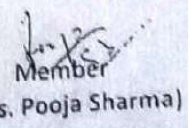 Member
s. Pooja Sharma)